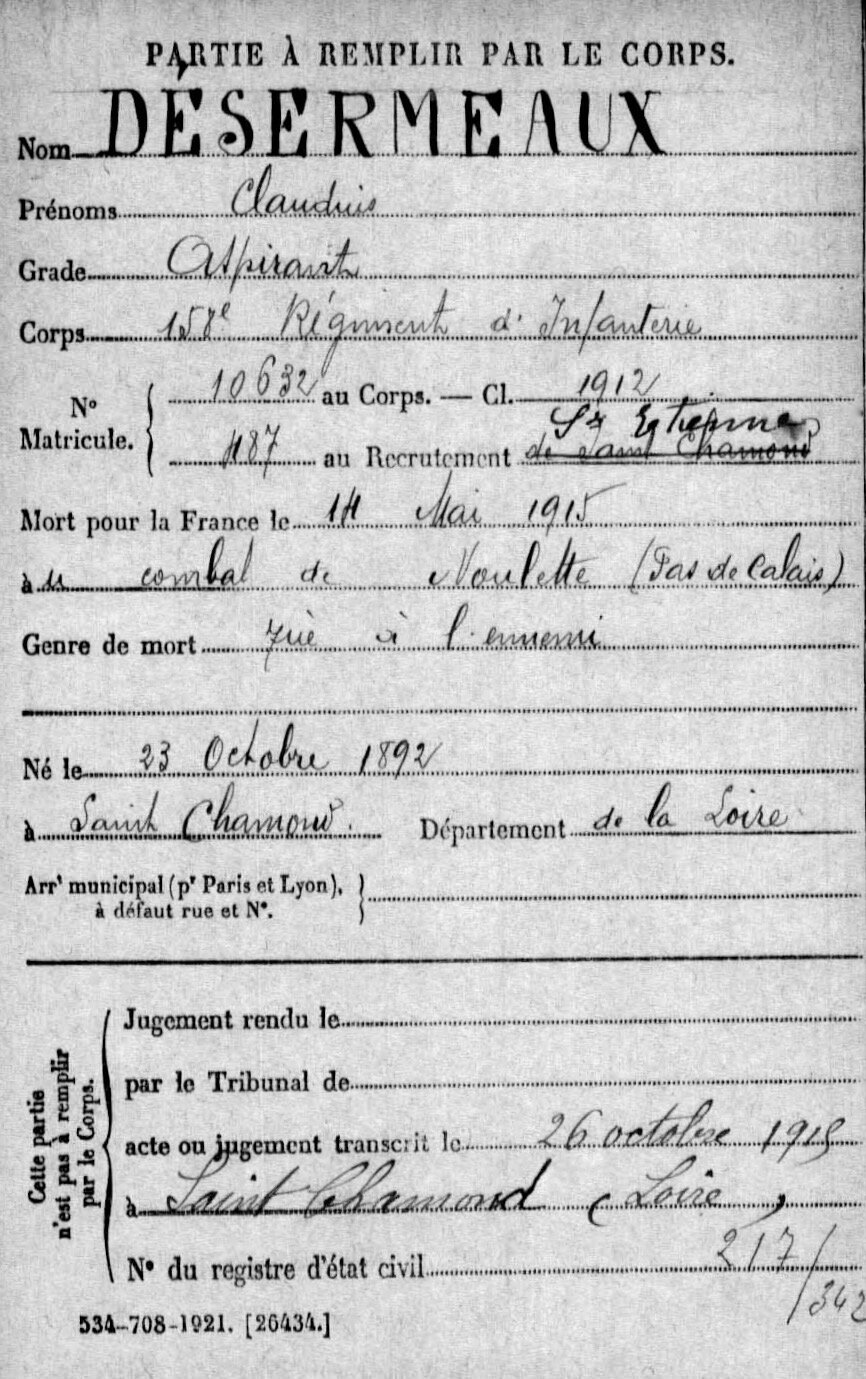 PARTIE À REMPLIR PAR LE CORPS.
Nom DÉSERMEAUX
Prénoms Claudius
Grade Aspirant
Corps 158e Régiment d'Infanterie
N° Matricule.
10632 au Corps. — Cl. 1912
St Etienne
487 au Recrutement de Saint Chamond
Mort pour la France le 14 Mai 1915
à u combat de Noulette (Pas de Calais)
Genre de mort Tué à l'ennemi
Né le 23 Octobre 1892
à Saint Chamond. Département de la Loire
Arrt municipal (pr Paris et Lyon),
à défaut rue et N°.
Cette partie
n'est pas à remplir
par le Corps.
Jugement rendu le
par le Tribunal de
acte ou jugement transcrit le 26 octobre 1915
à Saint Chamond (Loire)
N° du registre d'état civil 217/342
534-708-1921. [26434.]